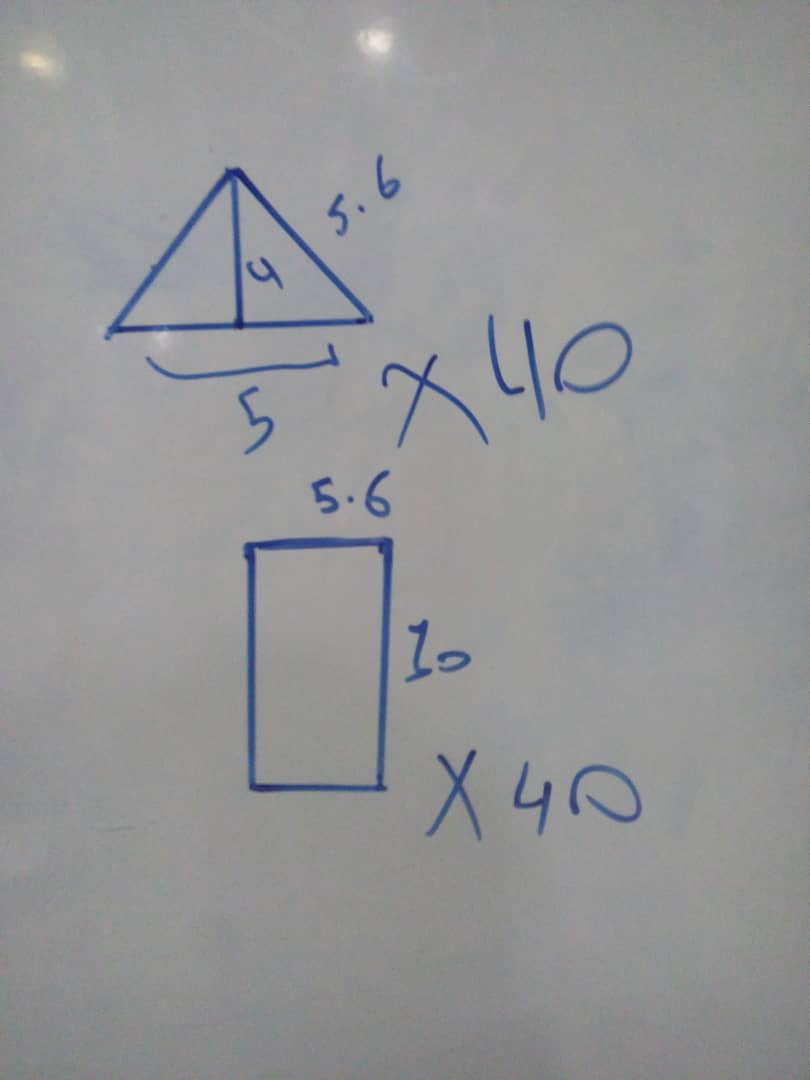 5.6
4
5
X 40
5.6
10
X 40